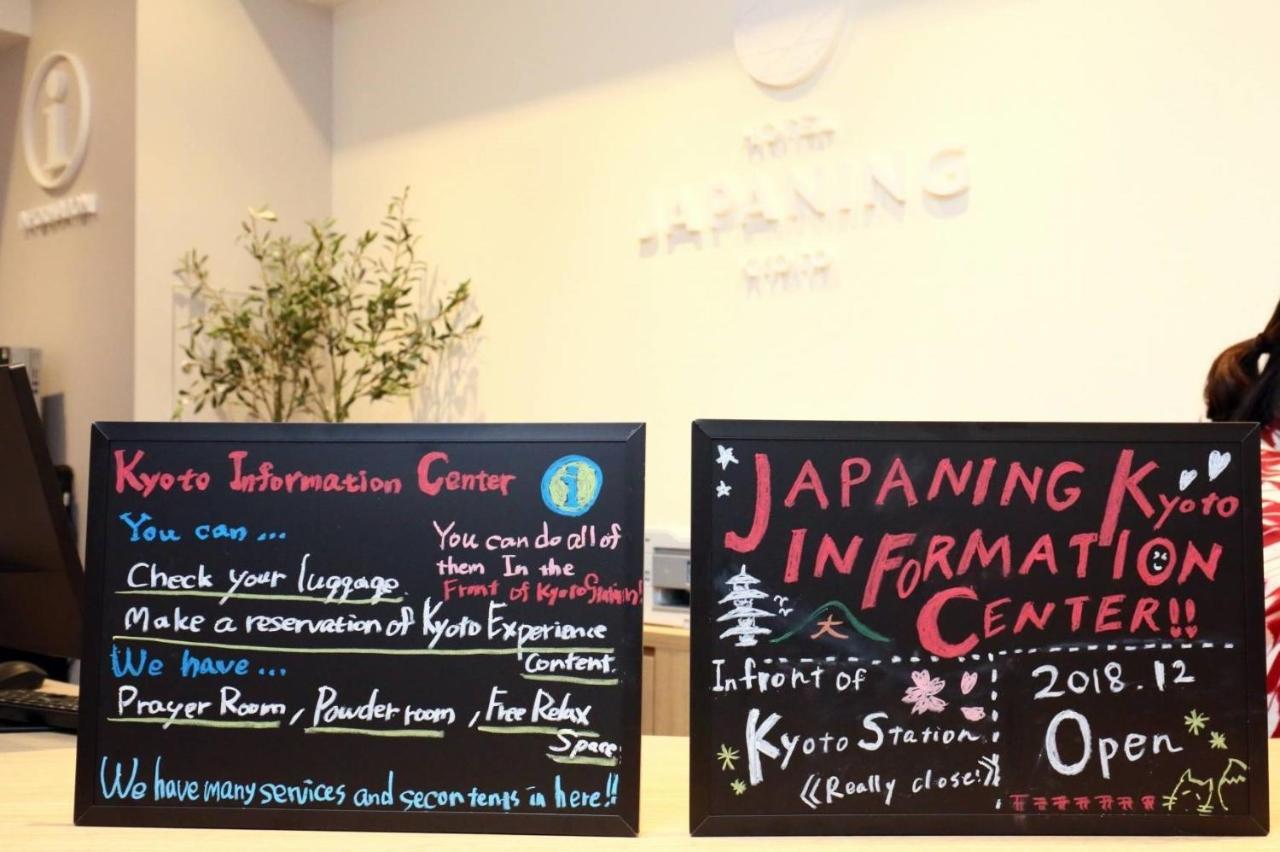 i
INFORMATION
HOTEL
JAPANING
KYOTO
Kyoto Information Center
i
You can...
You can do all of
them In the
Front of Kyoto Station!
Check your luggage
Make a reservation of Kyoto Experience
Content.
We have...
Prayer Room, Powder room, Free Relax
Space
We have many services and
in here!!
JAPANING Kyoto
INFORMATION
CENTER!!
大
Infront of
Kyoto Station
《Really close!》
2018.12
Open